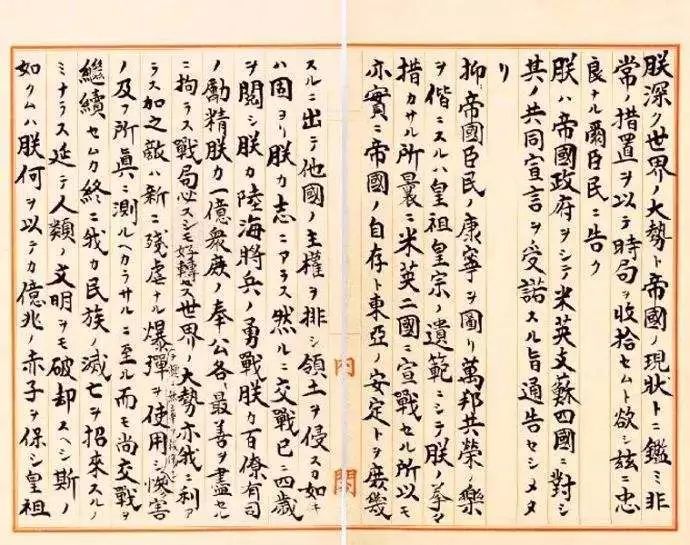 朕深ク世界ノ大勢ト帝國ノ現狀トニ鑑ミ非
常ノ措置ヲ以テ時局ヲ收拾セムト欲シ茲ニ忠
良ナル爾臣民ニ告ク
朕ハ帝國政府ヲシテ米英支蘇四國ニ對シ
其ノ共同宣言ヲ受諾スル旨通告セシメタ
リ
抑〻帝國臣民ノ康寧ヲ圖リ萬邦共榮ノ樂
ヲ偕ニスルハ皇祖皇宗ノ遺範ニシテ朕ノ拳〻
措カサル所曩ニ米英二國ニ宣戰セル所以モ
亦實ニ帝國ノ自存ト東亞ノ安定トヲ庶幾
内閣
スルニ出テ他國ノ主權ヲ排シ領土ヲ侵スカ如キ
ハ固ヨリ朕カ志ニアラス然ルニ交戰已ニ四歲
ヲ閱シ朕カ陸海將兵ノ勇戰朕カ百僚有司
ノ勵精朕カ一億衆庶ノ奉公各〻最善ヲ盡セル
ニ拘ラス戰局必スシモ好轉セス世界ノ大勢亦我ニ利ア
ラス加之敵ハ新ニ殘虐ナル爆彈ヲ使用シ慘害
ノ及フ所眞ニ測ルヘカラサルニ至ル而モ尚交戰ヲ
繼續セムカ終ニ我カ民族ノ滅亡ヲ招來スルノ
ミナラス延テ人類ノ文明ヲモ破却スヘシ斯ノ
如クムハ朕何ヲ以テカ億兆ノ赤子ヲ保シ皇祖